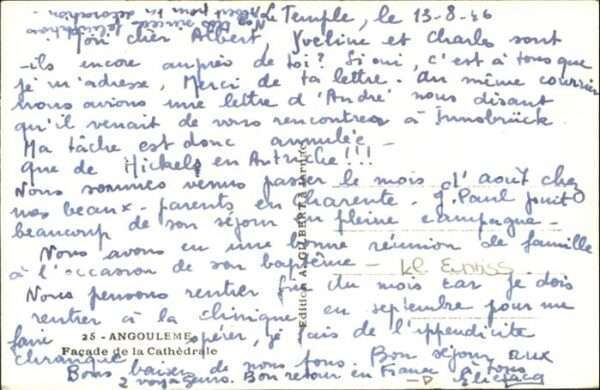 Le Temple, le 13-8-46
Mon cher Albert, Yveline et Charles sont
-ils encore auprès de toi? Si oui, c'est à tous que
je m'adresse, Merci de ta lettre. Au même courrier
nous avions une lettre d'André nous disant
qu'il venait de vous rencontrer à Innsbrück
Ma tâche est donc annulée -
que de Hickels en Autriche!!!
Nous sommes venus passer le mois d'août chez
mes beaux-parents en Charente. J. Paul jouit
beaucoup de son séjour en pleine campagne -
Nous avons eu une bonne réunion de famille
à l'occasion de son baptême -
Nous pensons rentrer fin du mois car je dois
rentrer à la clinique en septembre pour me
faire opérer, je fais de l'appendicite
chronique
Bons baisers de nous tous. Bon séjour aux
2 voyageurs. Bon retour en France à tous
25 - ANGOULEME
Façade de la Cathédrale